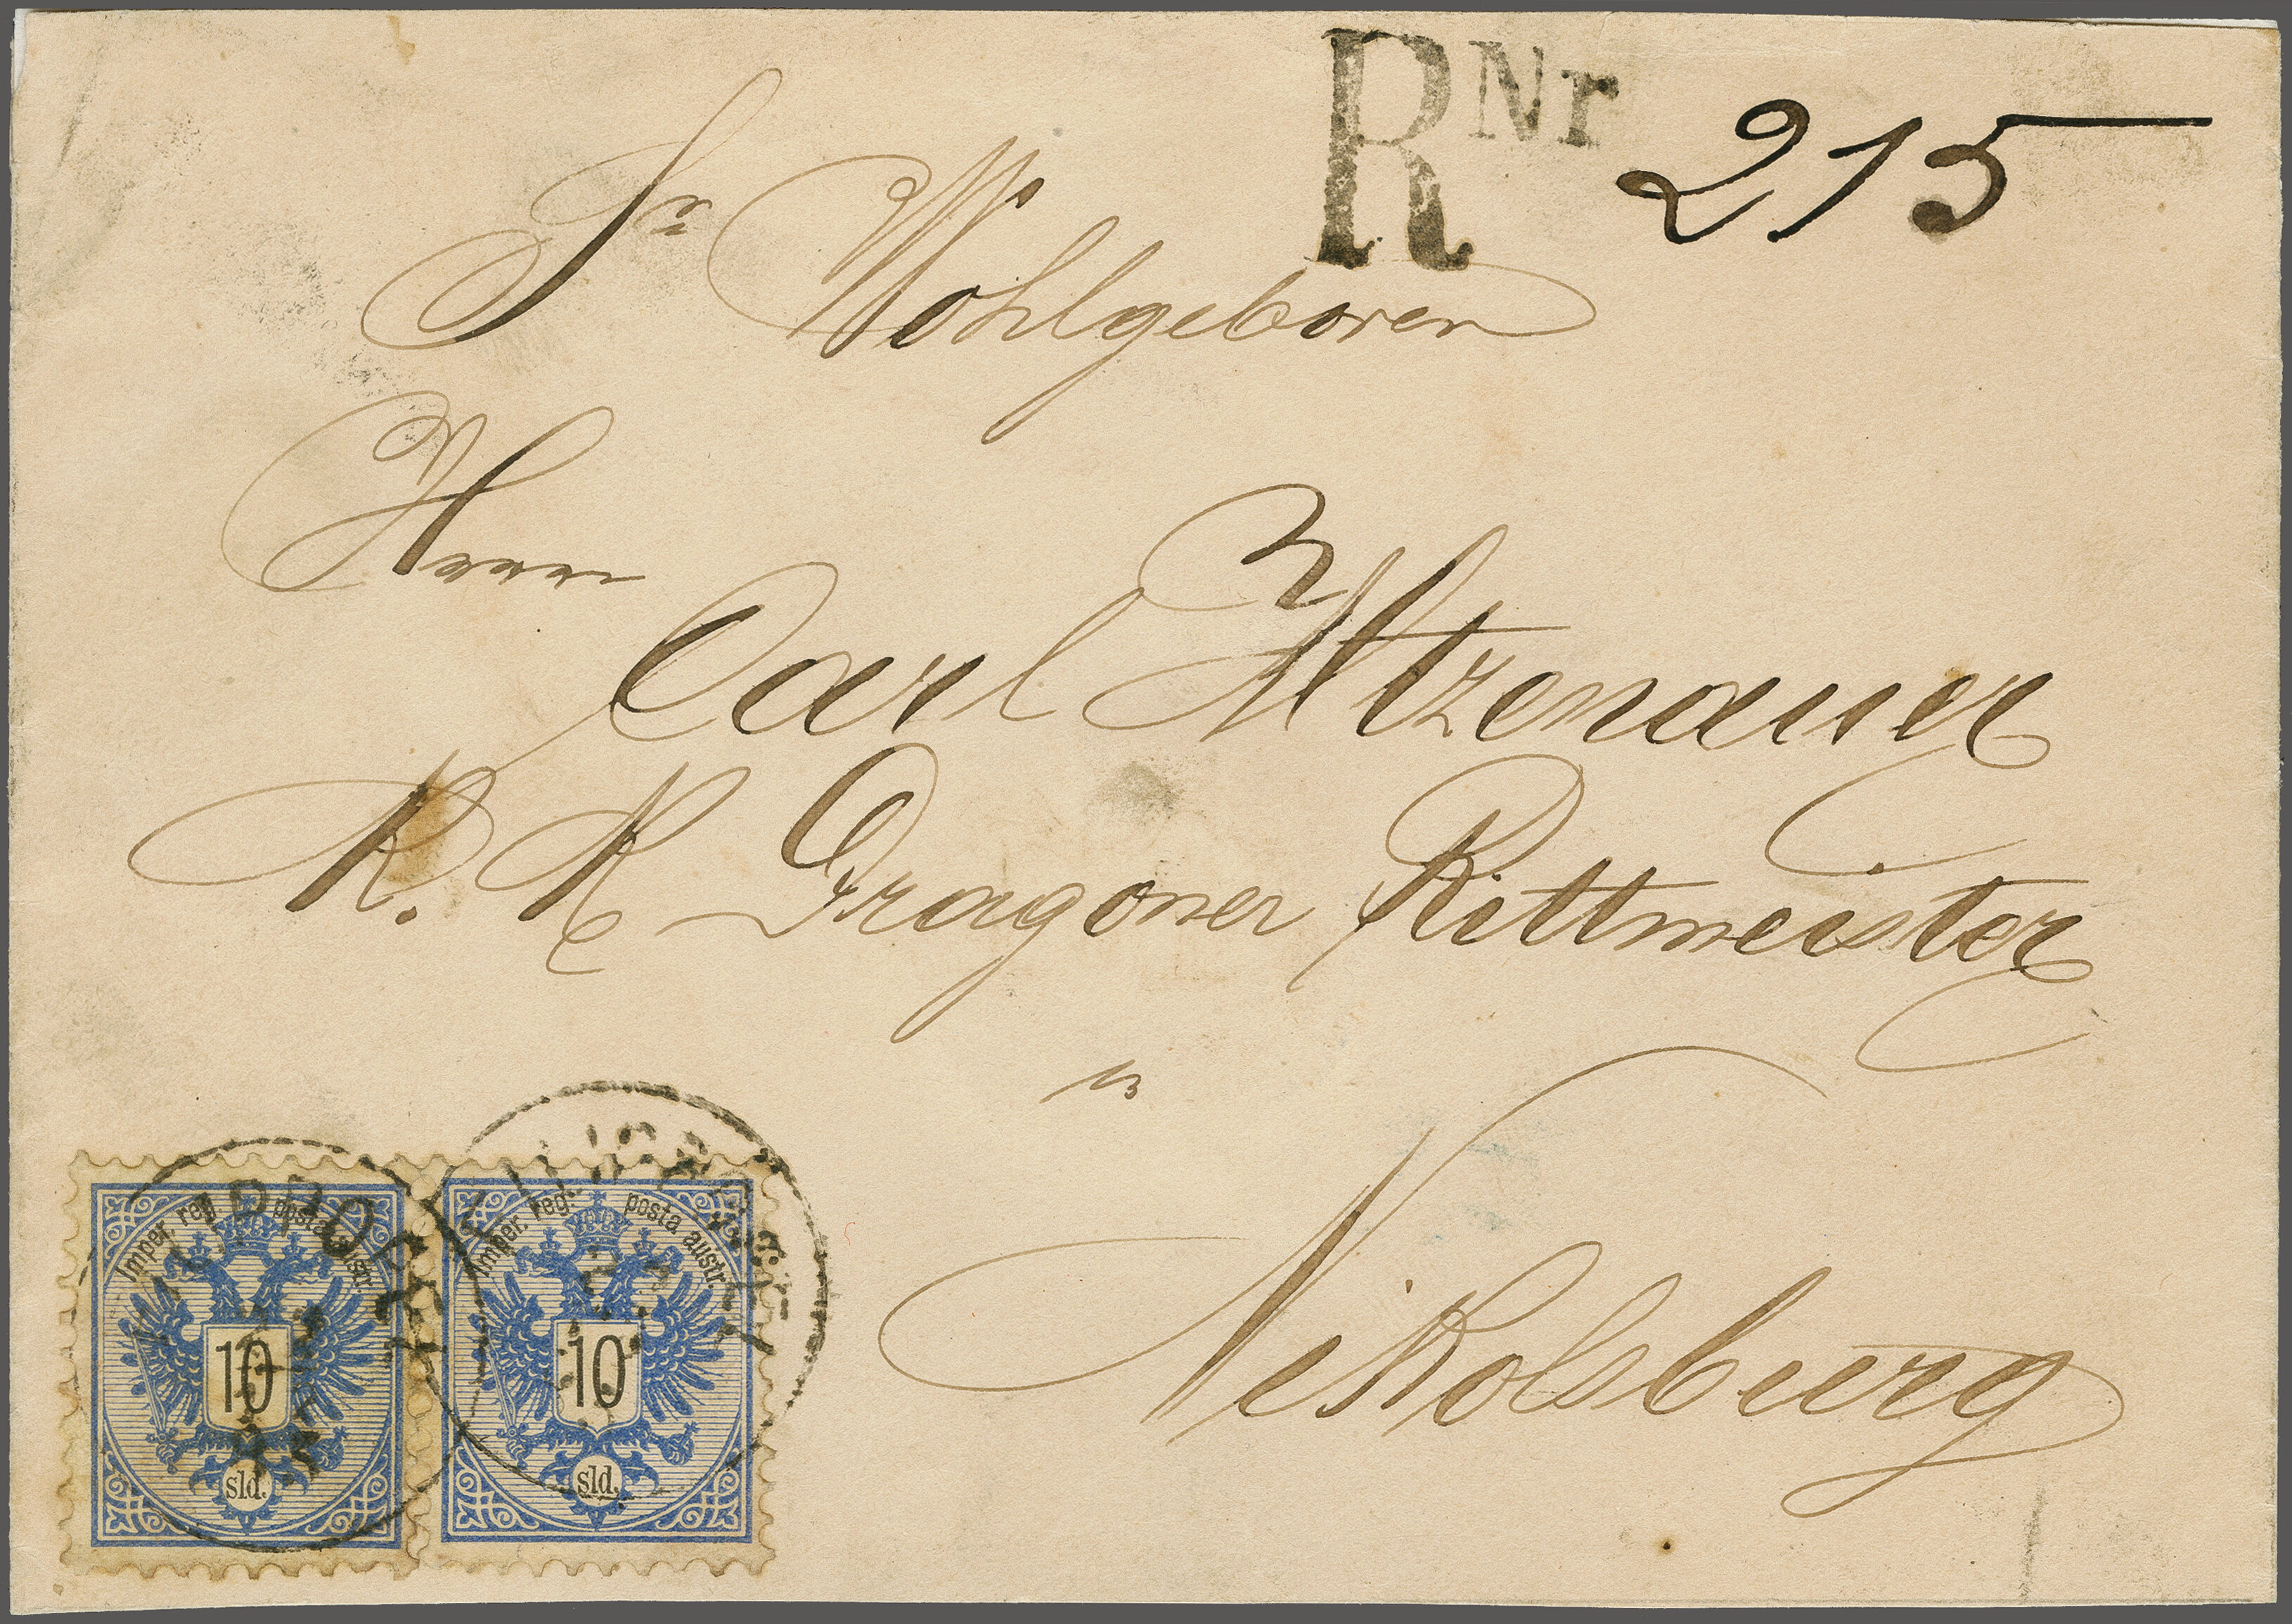 R Nr 215
Sr Wohlgeboren
Herrn
Carl Itzenauer
K. K Dragoner Rittmeister
in
Nikolsburg
Imper. reg. posta austr.
10
sld.
Imper. reg. posta austr.
10
sld.